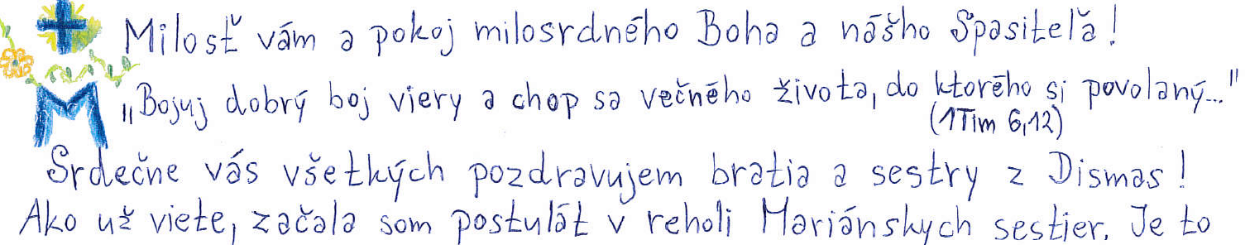 Milosť vám a pokoj milosrdného Boha a nášho Spasiteľa!
M
„Bojuj dobrý boj viery a chop sa večného života, do ktorého si povolaný..."
(1Tim 6,12)
Srdečne vás všetkých pozdravujem bratia a sestry z Dismas!
Ako už viete, začala som postulát v reholi Mariánskych sestier. Je to